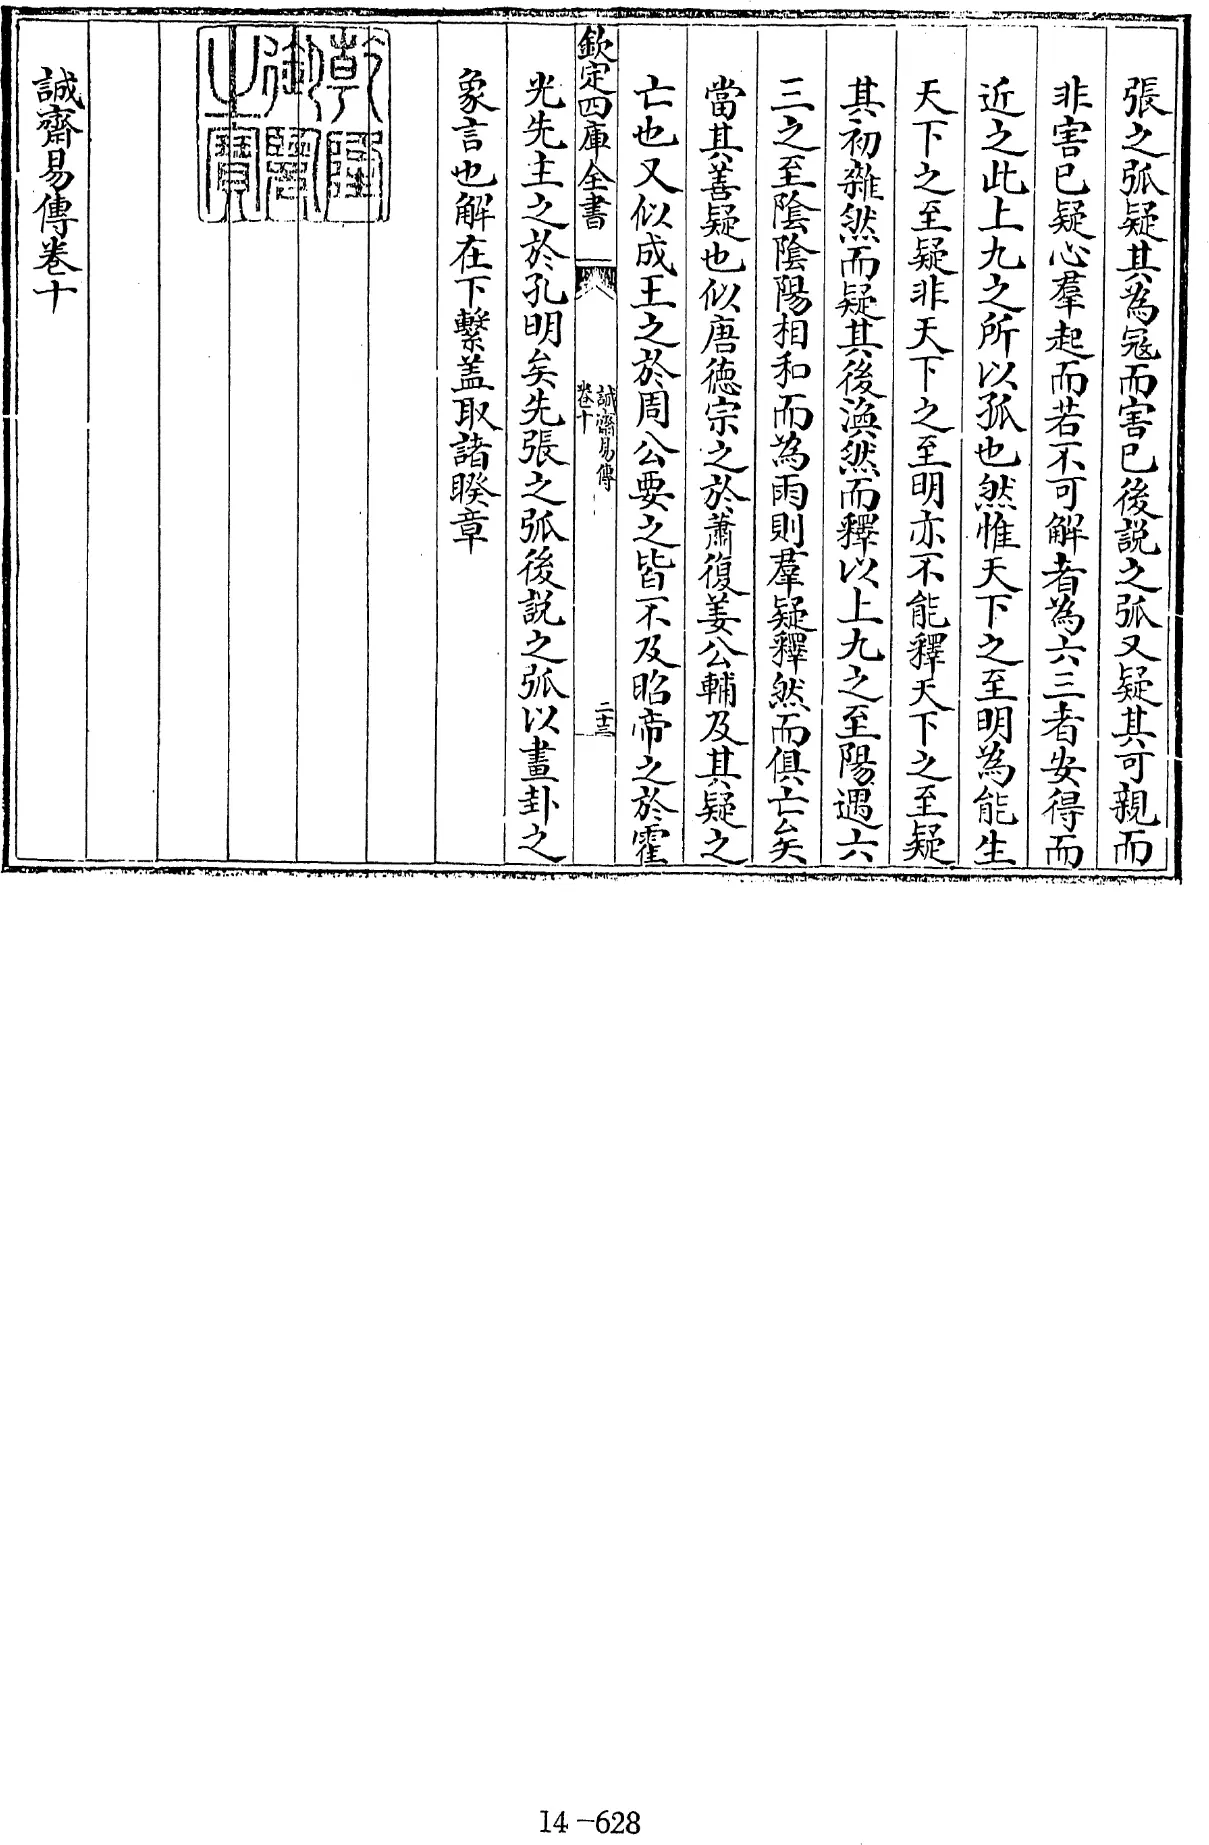 張之弧疑其為冦而害已後説之弧又疑其可親而
非害已疑心羣起而若不可解者為六三者安得而
近之此上九之所以孤也然惟天下之至明為能生
天下之至疑非天下之至明亦不能釋天下之至疑
其初雜然而疑其後渙然而釋以上九之至陽遇六
三之至陰陰陽相和而為雨則羣疑釋然而俱亡矣
當其善疑也似唐德宗之於蕭復姜公輔及其疑之
亡也又似成王之於周公要之皆不及昭帝之於霍
欽定四庫全書
誠齋易傳
卷十
二十三
光先主之於孔明矣先張之弧後説之弧以畫卦之
象言也解在下繫盖取諸睽章
乾隆御覽之寶
誠齋易傳卷十
14-628